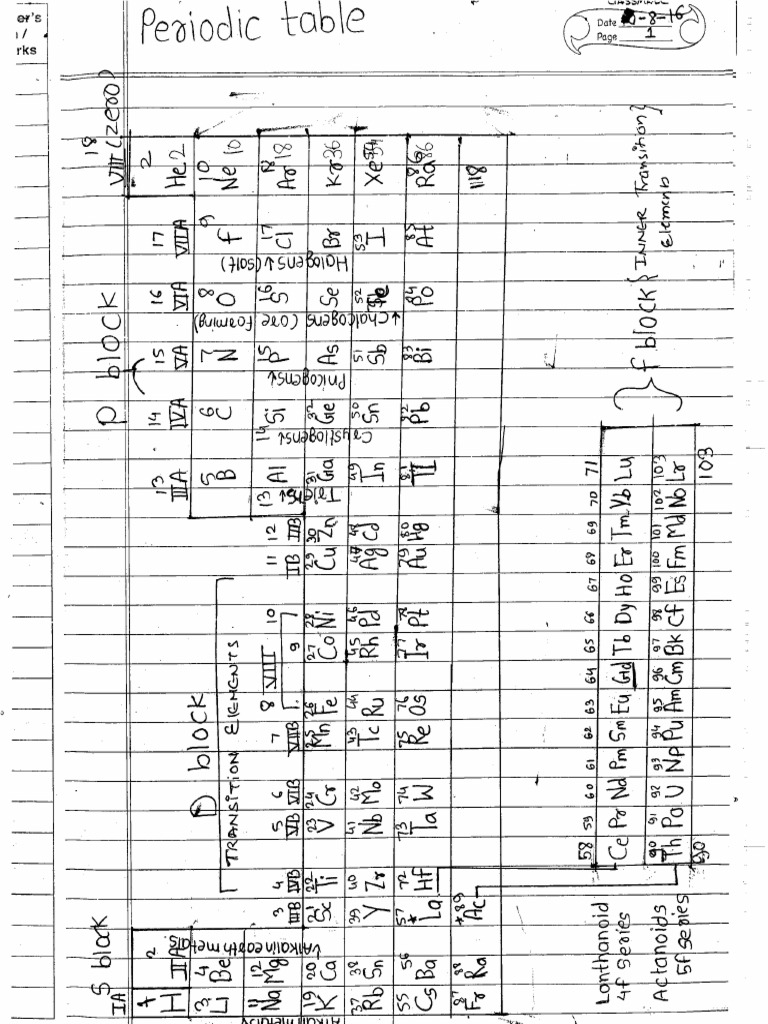 er's
rks
CLASSMATE
Date 10-8-16
Page 1
Periodic table
S block
D block
P block
18
VIII (zero)
IA
1
H
2
IIA
13
IIIA
14
IVA
15
VA
16
VIA
17
VIIA
2
He 2
3 Li
4 Be
5 B
6 C
7 N
8 O
9 f
10 Ne 10
TRANSITION ELEMENTS
8 VIII 9 10
3 IIIB
4 IVB
5 VB
6 VIB
7 VIIB
11 IB
12 IIB
11 Na
12 Mg
13 Al
14 Si
15 P
16 S
17 Cl
18 Ar 18
Alkali metals
Alkalin earth metals
Crystlogens↓
Pnicogens↓
↓Chalcogens (ore foaming)
Halogens↓(salt)
19 K
20 Ca
21 Sc
22 Ti
23 V
24 Cr
25 Mn
26 Fe
27 Co
28 Ni
29 Cu
30 Zn
31 Ga
32 Ge
As
Se
Br
Kr 36
37 Rb
38 Sn
39 Y
40 Zr
41 Nb
42 Mo
43 Tc
44 Ru
45 Rh
46 Pd
47 Ag
48 Cd
49 In
50 Sn
51 Sb
52 Te
53 I
Xe 54
55 Cs
56 Ba
57 * La
72 Hf
73 Ta
74 W
75 Re
76 Os
77 Ir
78 Pt
79 Au
80 Hg
81 Tl
82 Pb
83 Bi
84 Po
85 At
86 Ra 86
87 Fr
88 Ra
*89 Ac
118
58 59 60 61 62 63 64 65 66 67 68 69 70 71
Lonthanoid
4f series
Ce Pr Nd Pm Sm Eu Gd Tb Dy Ho Er Tm Yb Lu
90 91 92 93 94 95 96 97 98 99 100 101 102 103
Actanoids
5f series
Th Pa U Np Pu Am Cm Bk Cf Es Fm Md No Lr
90
103
f block { INNER Transition
Elements }